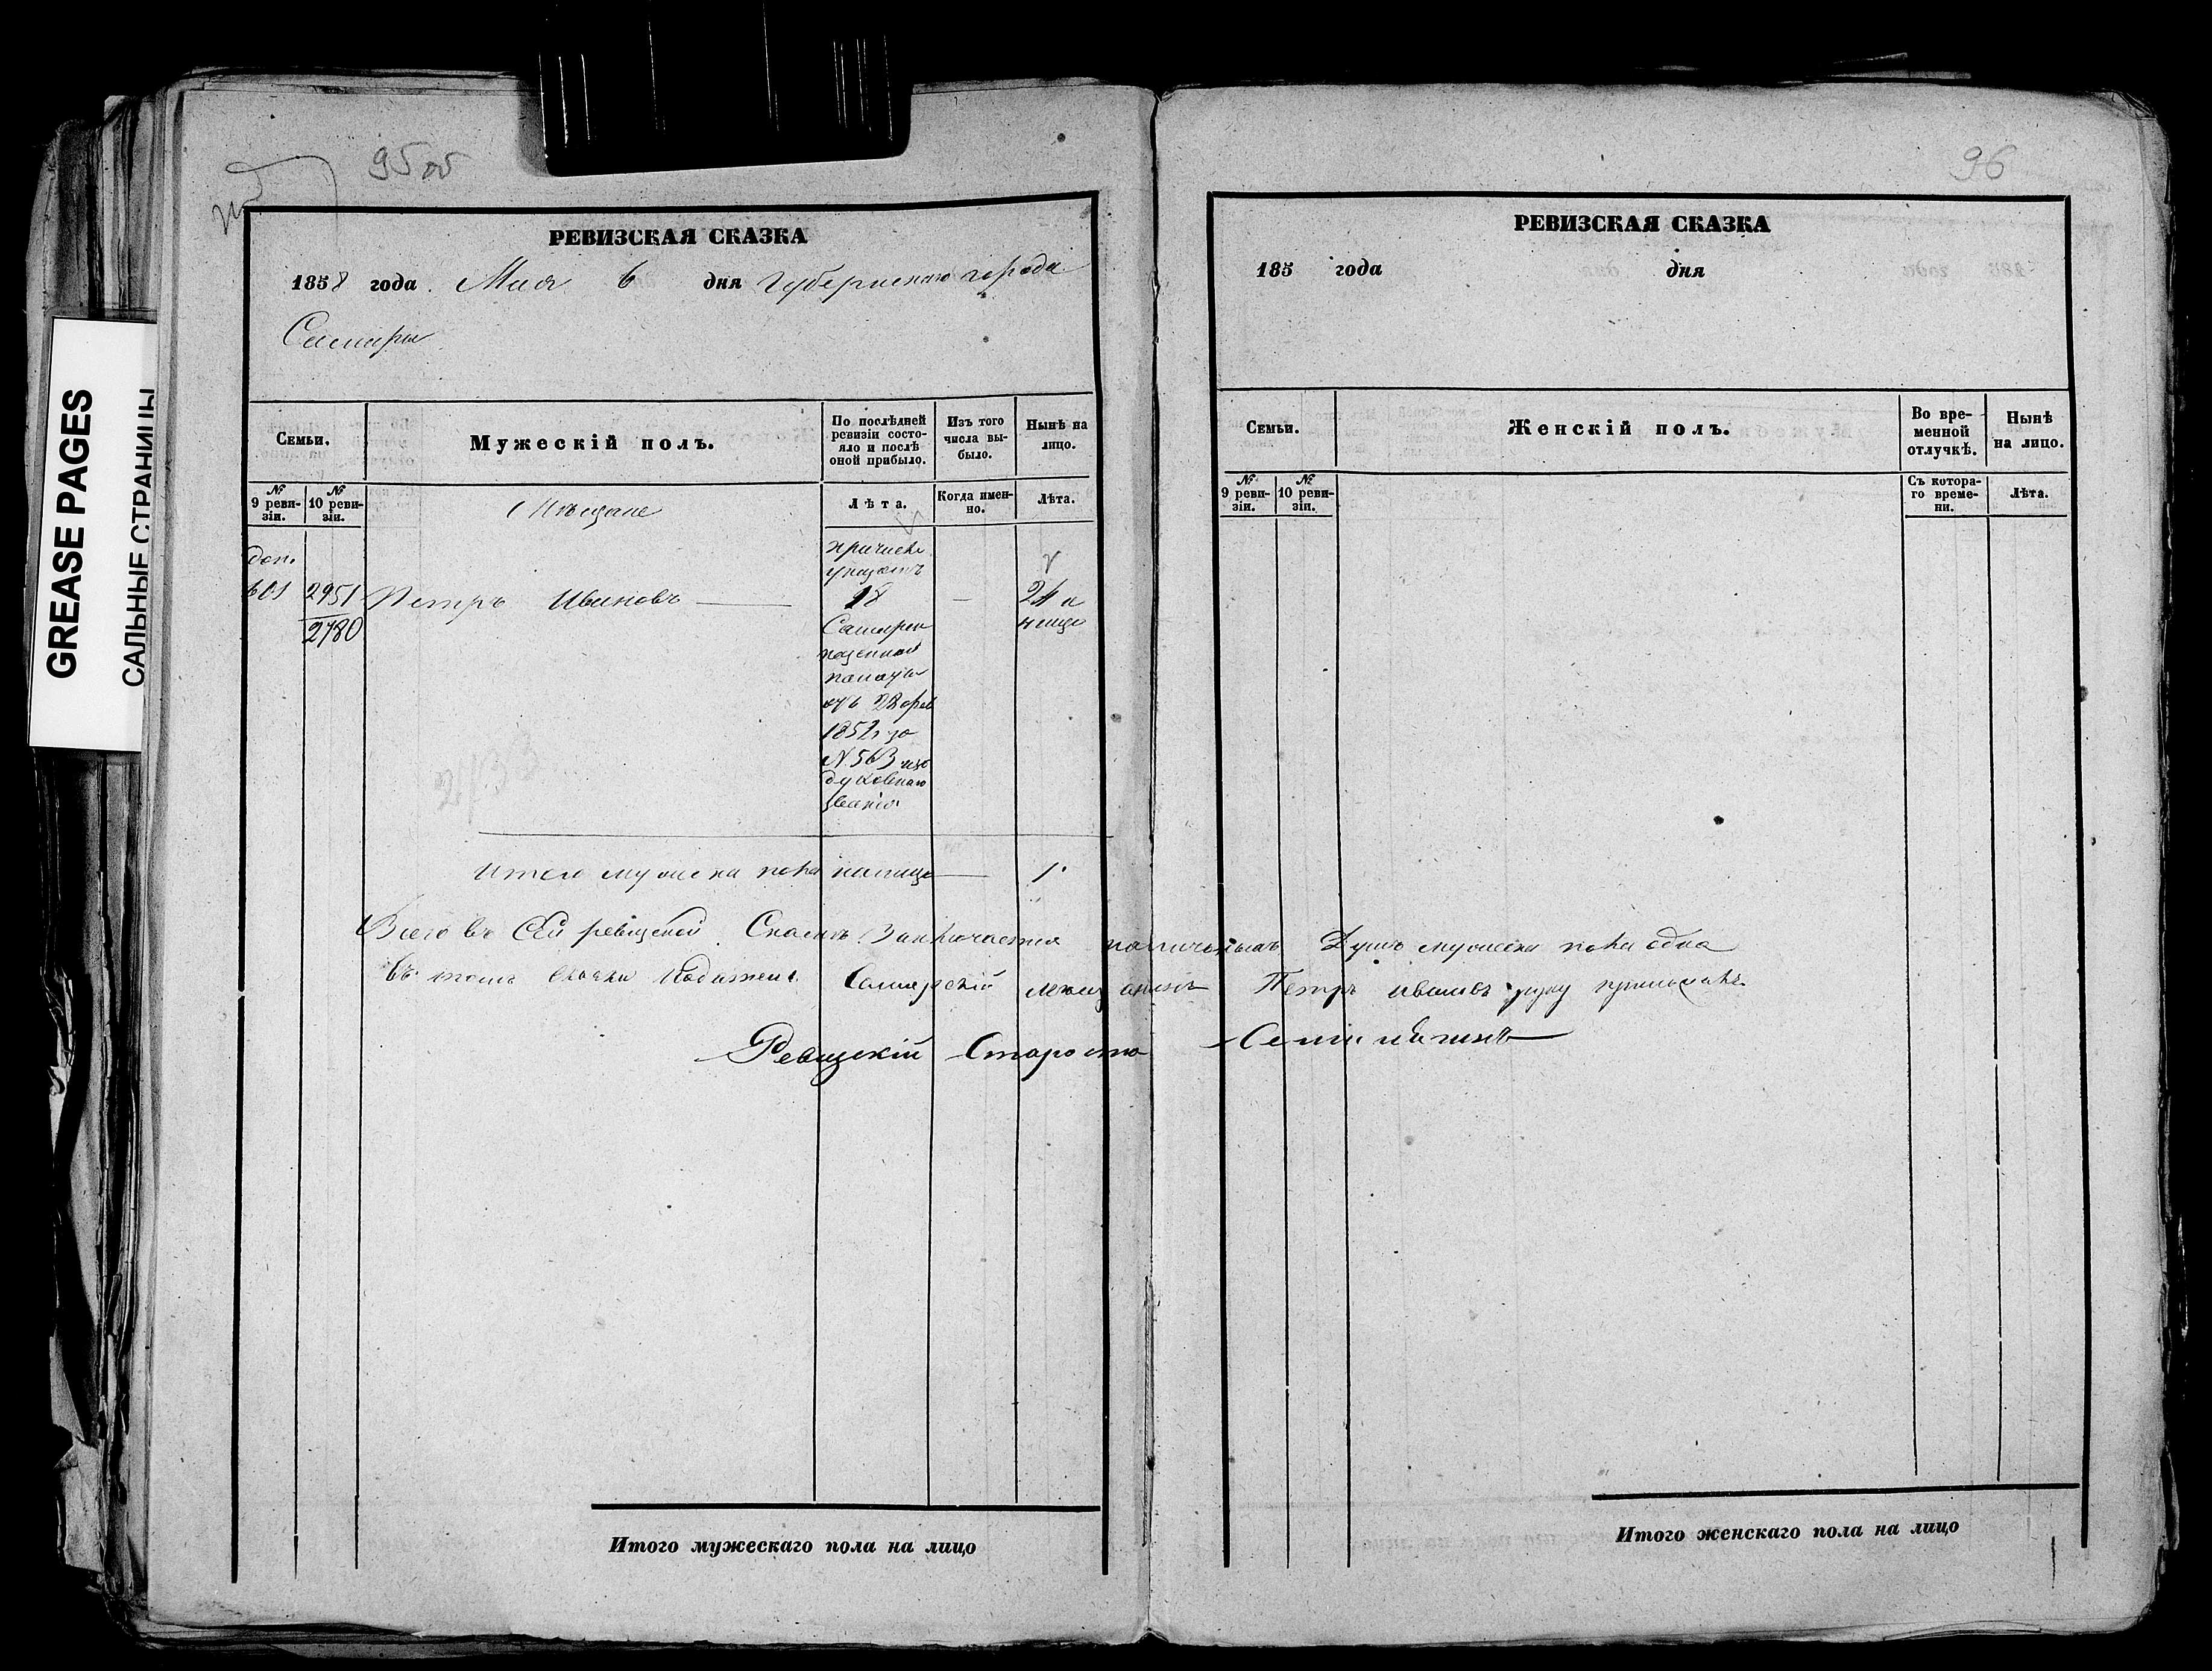 GREASE PAGES
САЛЬНЫЕ СТРАНИЦЫ
95 об
РЕВИЗСКАЯ СКАЗКА
1858 года Мая 6 дня Губернскаго города
Самары
Семьи.
Мужескій полъ.
По послѣдней ревизіи состояло и послѣ оной прибыло.
Изъ того числа выбыло.
Нынѣ на лицо.
№ 9 ревизіи.
№ 10 ревизіи.
Мѣщане
Лѣта.
Когда именно.
Лѣта.
доп.
601
2951
2780
Петръ Ивановъ
причисл.
указомъ
18
—
24
на лицо
казенной
палаты
отъ 28 фев
1852 г за
N 563 изъ
духовнаго
званія
2733
Итого мужеска пола налицо — 1.
Всего въ Сей ревизской Сказкѣ Заключается наличныхъ Душъ мужеска пола одна
въ томъ сказки Самарскій мещанинъ Петръ ивановъ руку приложилъ
Ревизскій Староста
Итого мужескаго пола на лицо
96
РЕВИЗСКАЯ СКАЗКА
185 года дня
Семьи.
Женскій полъ.
Во временной отлучкѣ.
Нынѣ на лицо.
№ 9 ревизіи.
№ 10 ревизіи.
Съ котораго времени.
Лѣта.
Итого женскаго пола на лицо